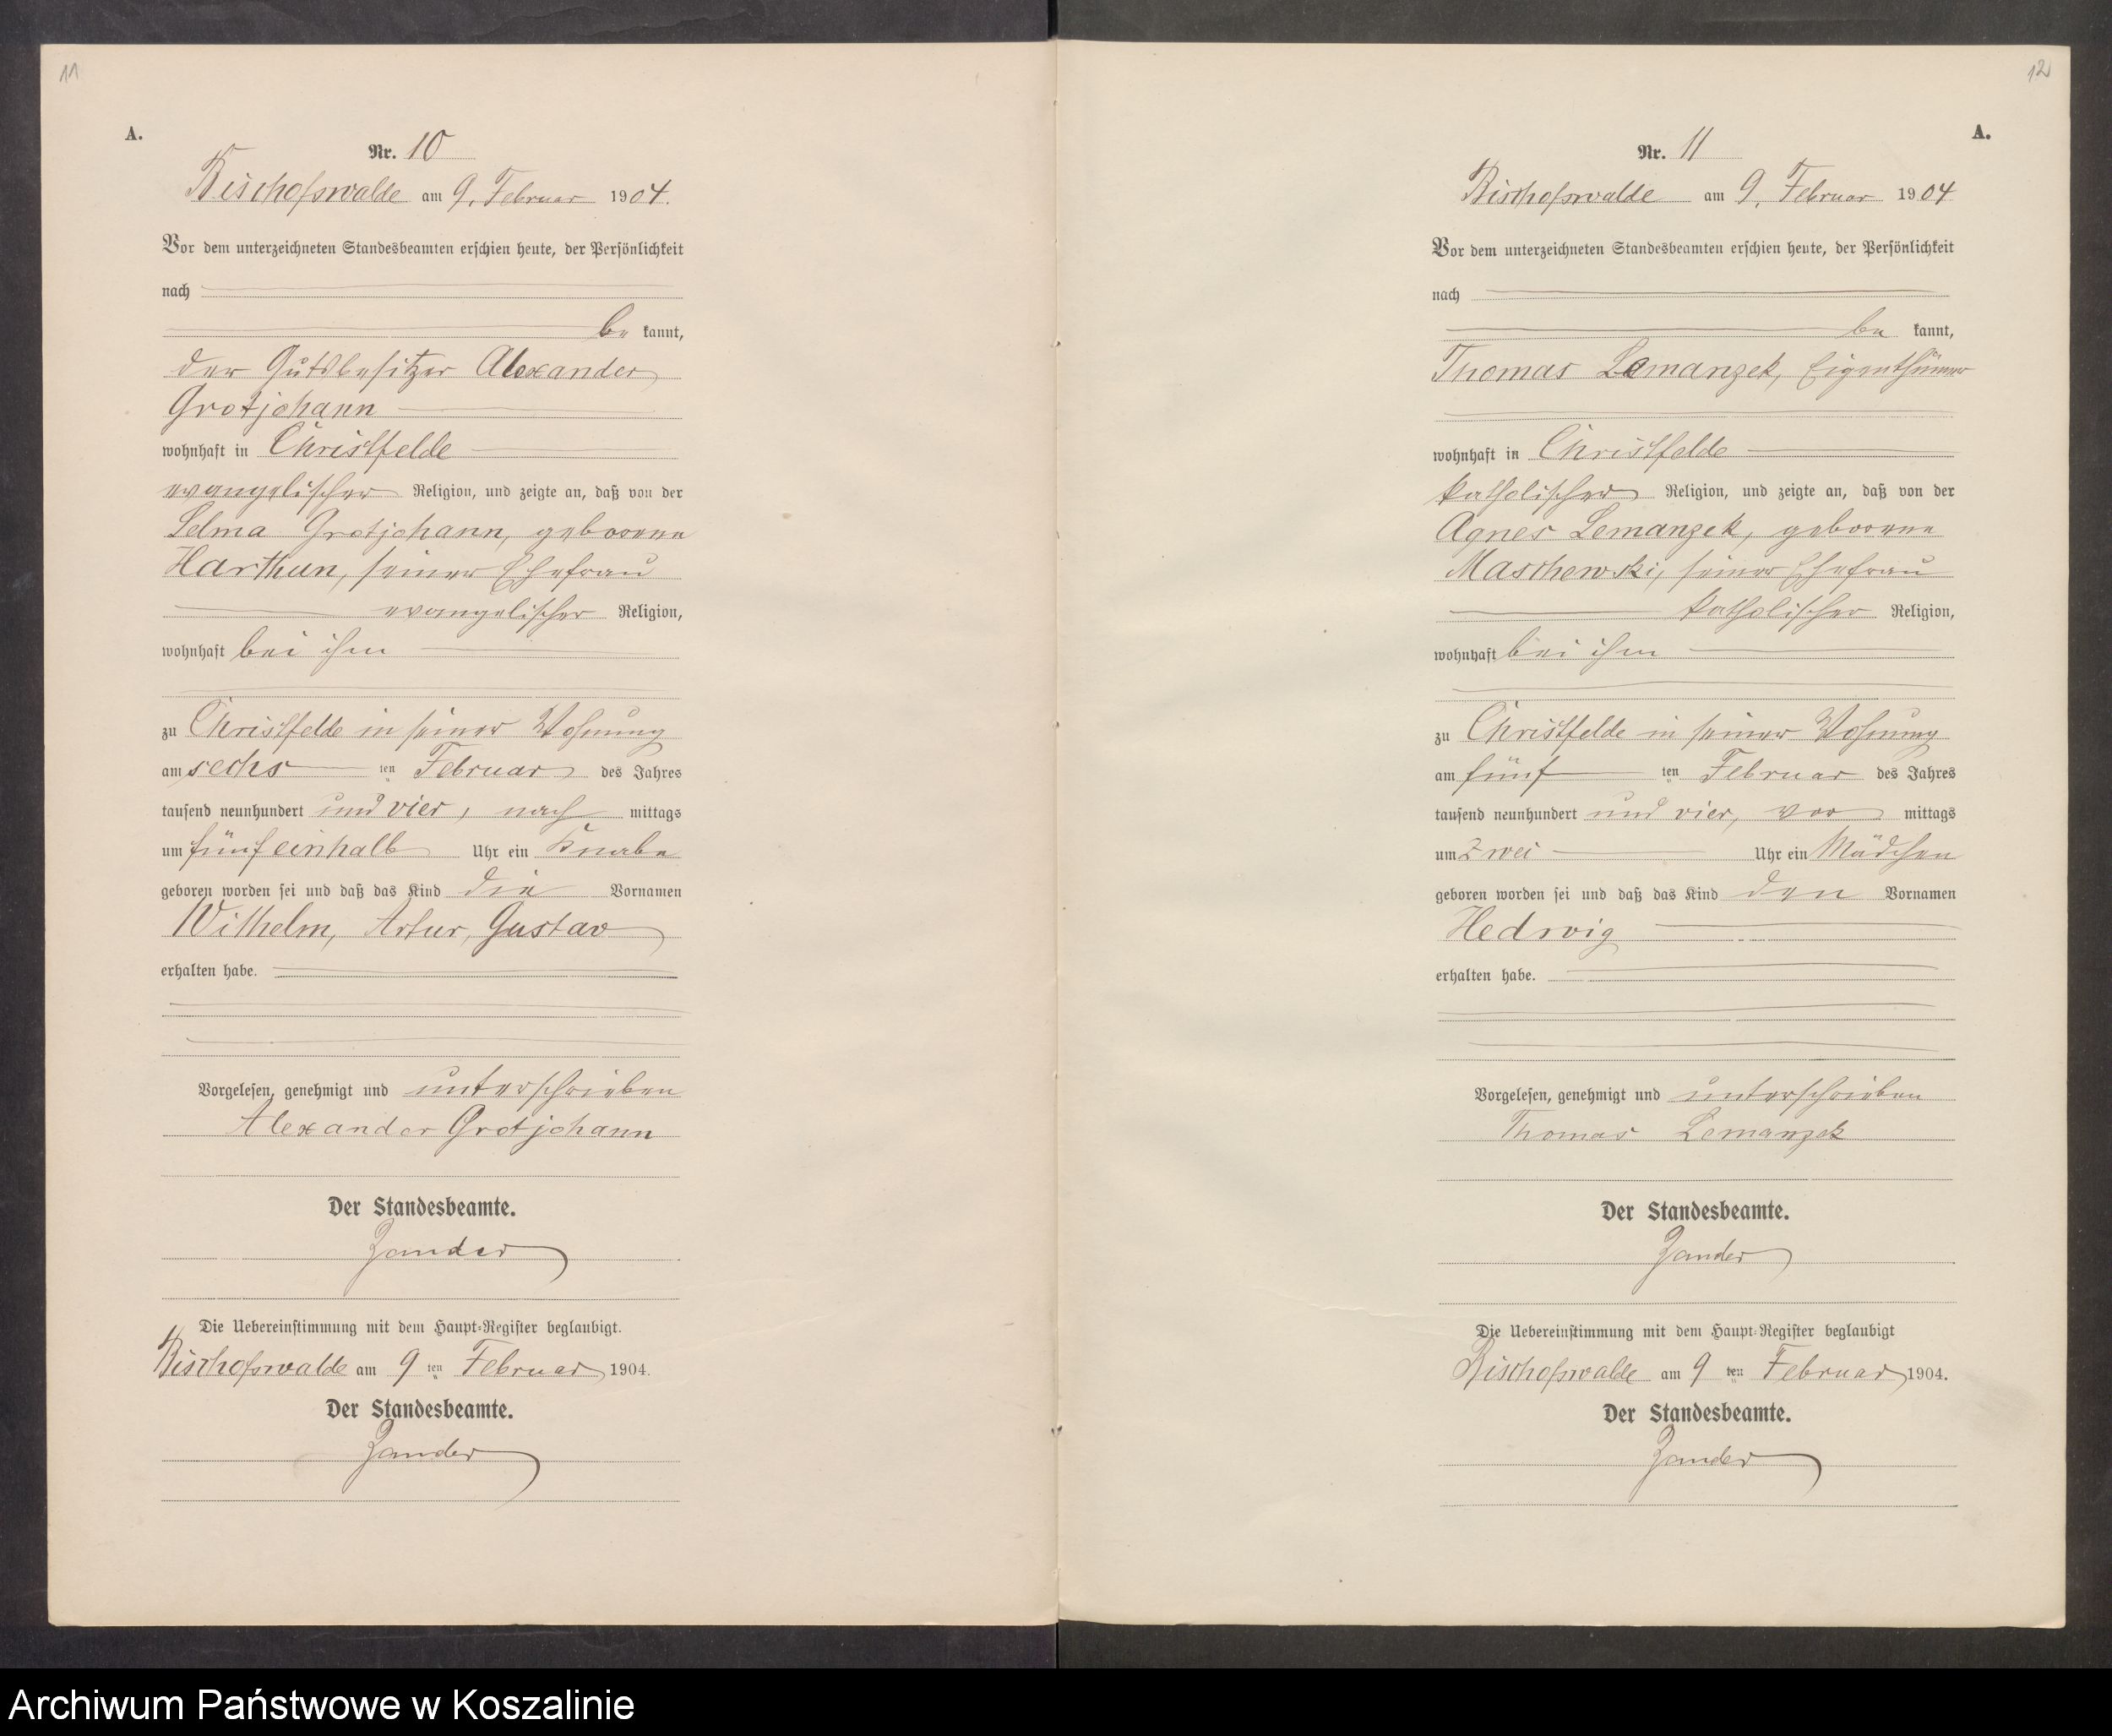 11
A.
Nr. 10
Bischofswalde am 9. Februar 1904.
Vor dem unterzeichneten Standesbeamten erschien heute, der Persönlichkeit
nach
be kannt,
der Gutsbesitzer Alexander
Grotjohann
wohnhaft in Christfelde
evangelischer Religion, und zeigte an, daß von der
Selma Grotjohann, geborene
Harthun, seiner Ehefrau
evangelischer Religion,
wohnhaft bei ihm
zu Christfelde in seiner Wohnung
am sechs ten Februar des Jahres
tausend neunhundert und vier, nach mittags
um fünf einhalb Uhr ein Knabe
geboren worden sei und daß das Kind die Vornamen
Wilhelm, Artur, Gustav
erhalten habe.
Vorgelesen, genehmigt und unterschrieben
Alexander Grotjohann
Der Standesbeamte.
Zander
Die Uebereinstimmung mit dem Haupt-Register beglaubigt.
Bischofswalde am 9 ten Februar 1904.
Der Standesbeamte.
Zander
12
A.
Nr. 11
Bischofswalde am 9. Februar 1904
Vor dem unterzeichneten Standesbeamten erschien heute, der Persönlichkeit
nach
be kannt,
Thomas Lemanzek, Eigenthümer
wohnhaft in Christfelde
katholischer Religion, und zeigte an, daß von der
Agnes Lemanzek, geborene
Maschewski, seiner Ehefrau
katholischer Religion,
wohnhaft bei ihm
zu Christfelde in seiner Wohnung
am fünf ten Februar des Jahres
tausend neunhundert und vier, vor mittags
um zwei Uhr ein Mädchen
geboren worden sei und daß das Kind den Vornamen
Hedwig
erhalten habe.
Vorgelesen, genehmigt und unterschrieben
Thomas Lemanzek
Der Standesbeamte.
Zander
Die Uebereinstimmung mit dem Haupt-Register beglaubigt
Bischofswalde am 9 ten Februar 1904.
Der Standesbeamte.
Zander
Archiwum Państwowe w Koszalinie